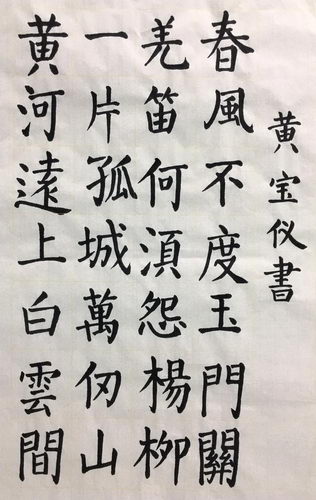 黄河遠上白雲間
一片孤城萬仞山
羌笛何湏怨楊柳
春風不度玉門關
黄宝仪書